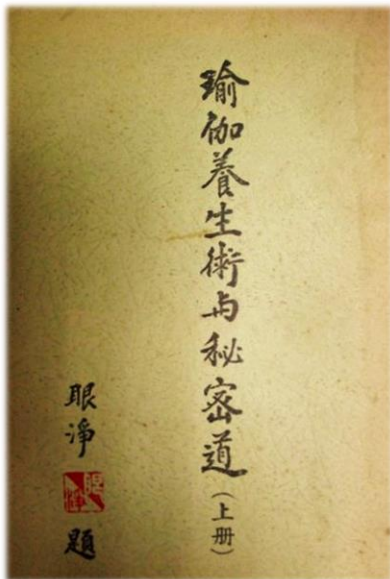 瑜伽養生術与秘密道(上册)
眼淨
題